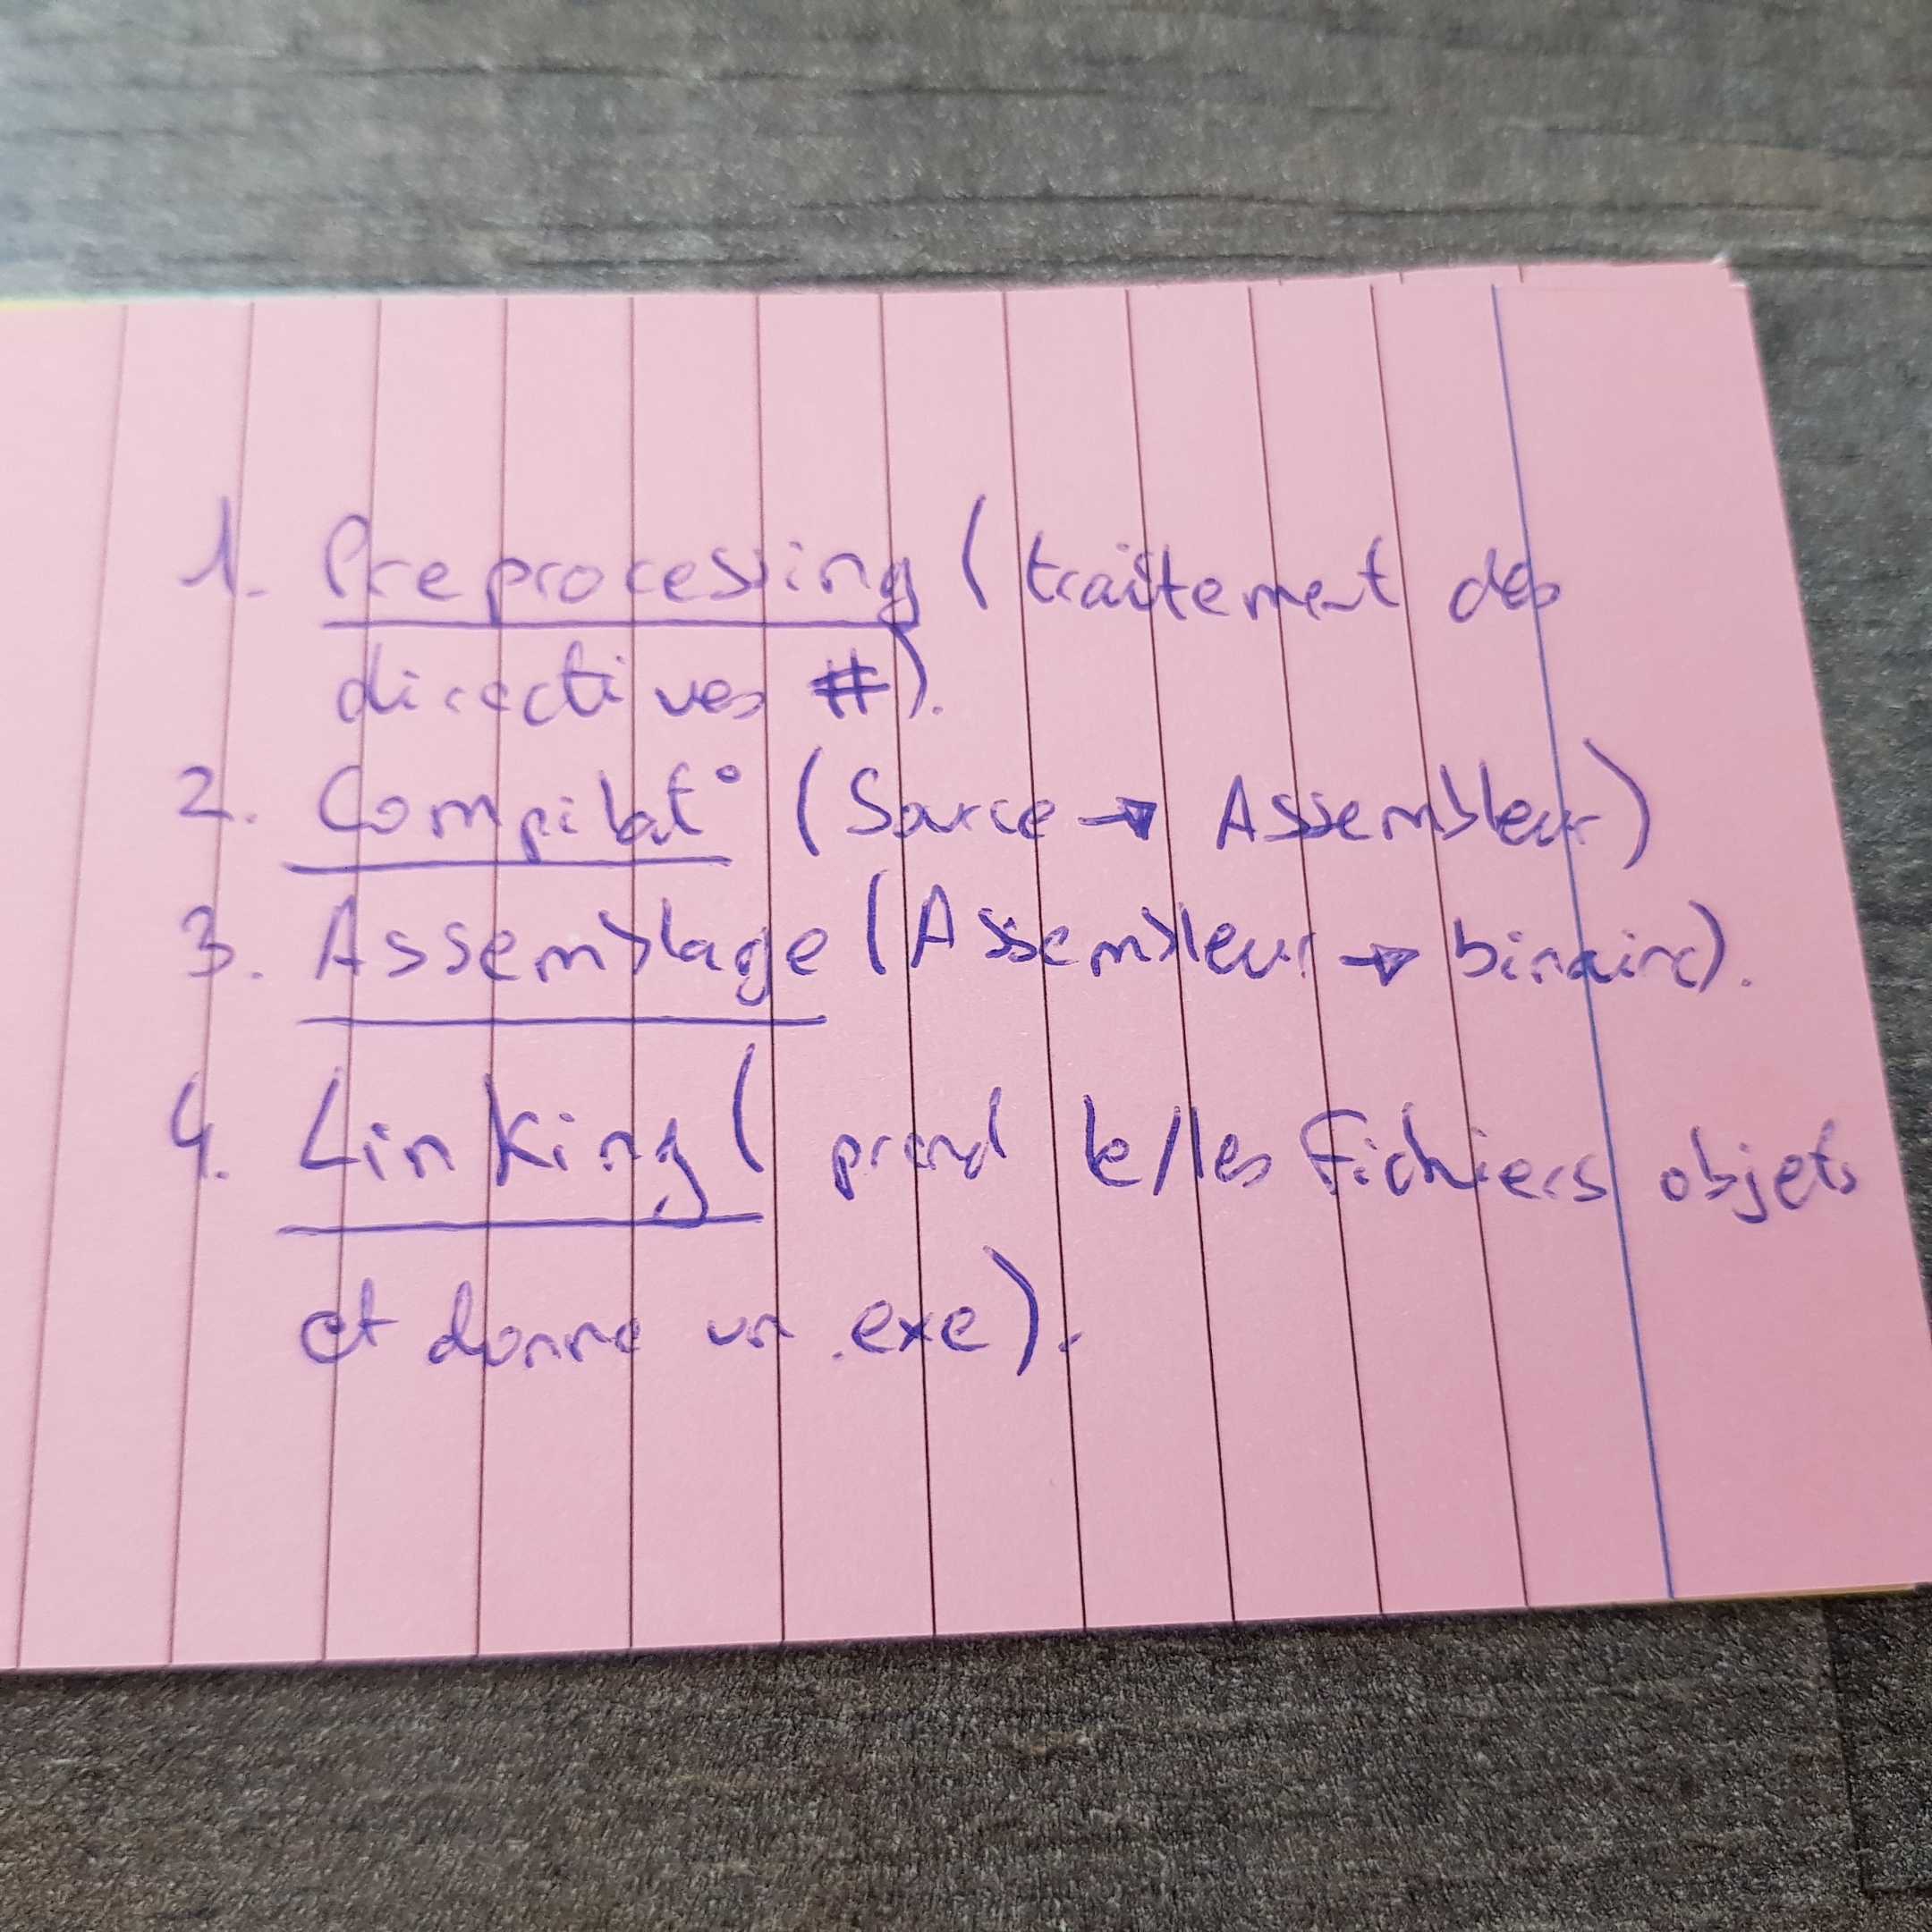 1. Preprocessing (traitement des
directives #).
2. Compilat° (Source → Assembleur)
3. Assemblage (Assembleur → binaire).
4. Linking ( prend le/les fichiers objets
et donne un .exe).